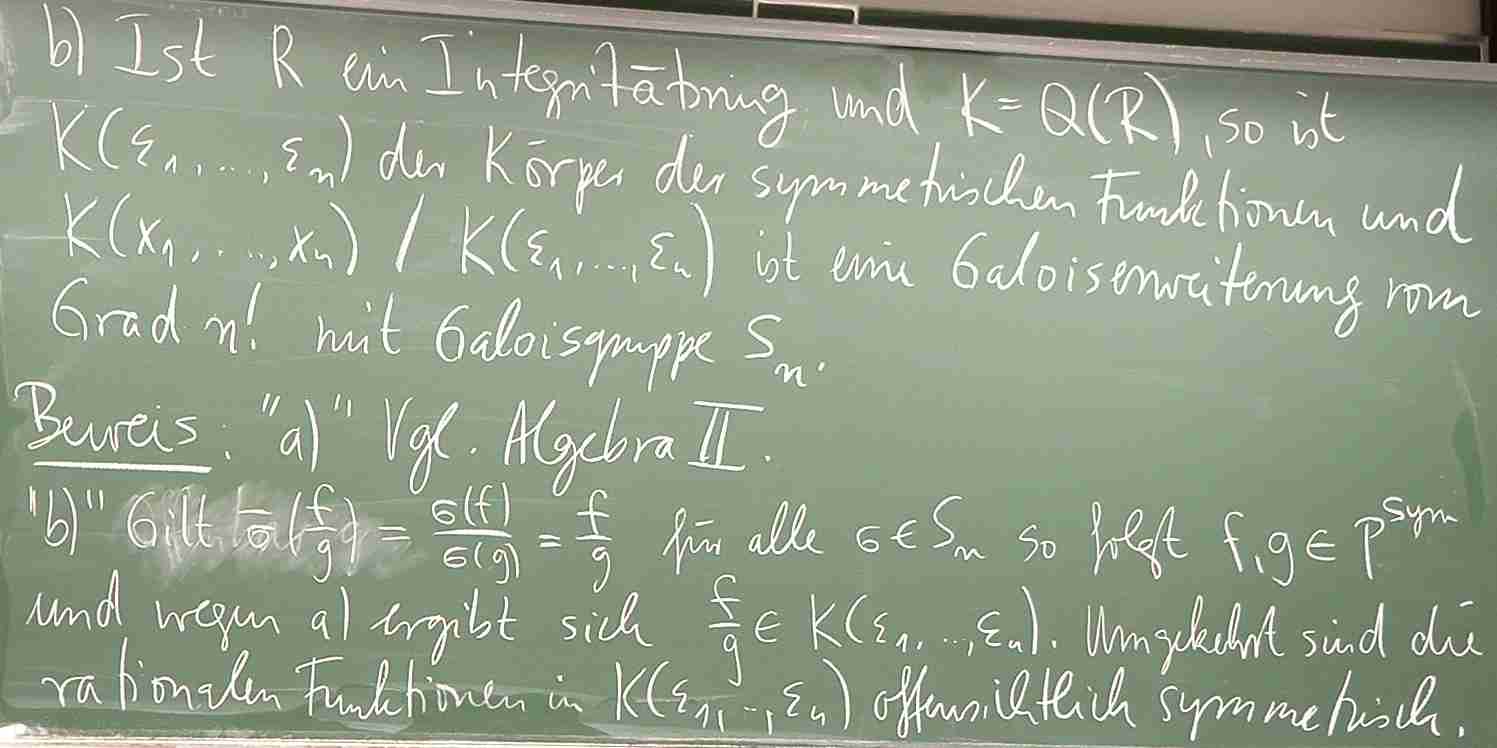 b) Ist R ein Integritätsring, und K = Q(R), so ist
K(ε₁, ..., εₙ) der Körper der symmetrischen Funktionen und
K(x₁, ..., xₙ) / K(ε₁, ..., εₙ) ist eine Galoiserweiterung vom
Grad n! mit Galoisgruppe Sₙ.
Beweis: "a)" Vgl. Algebra II.
"b)" Gilt σ(f/g) = σ(f)/σ(g) = f/g für alle σ ∈ Sₙ so folgt f, g ∈ P^sym
und wegen a) ergibt sich f/g ∈ K(ε₁, ..., εₙ). Umgekehrt sind die
rationalen Funktionen in K(ε₁, .., εₙ) offensichtlich symmetrisch.